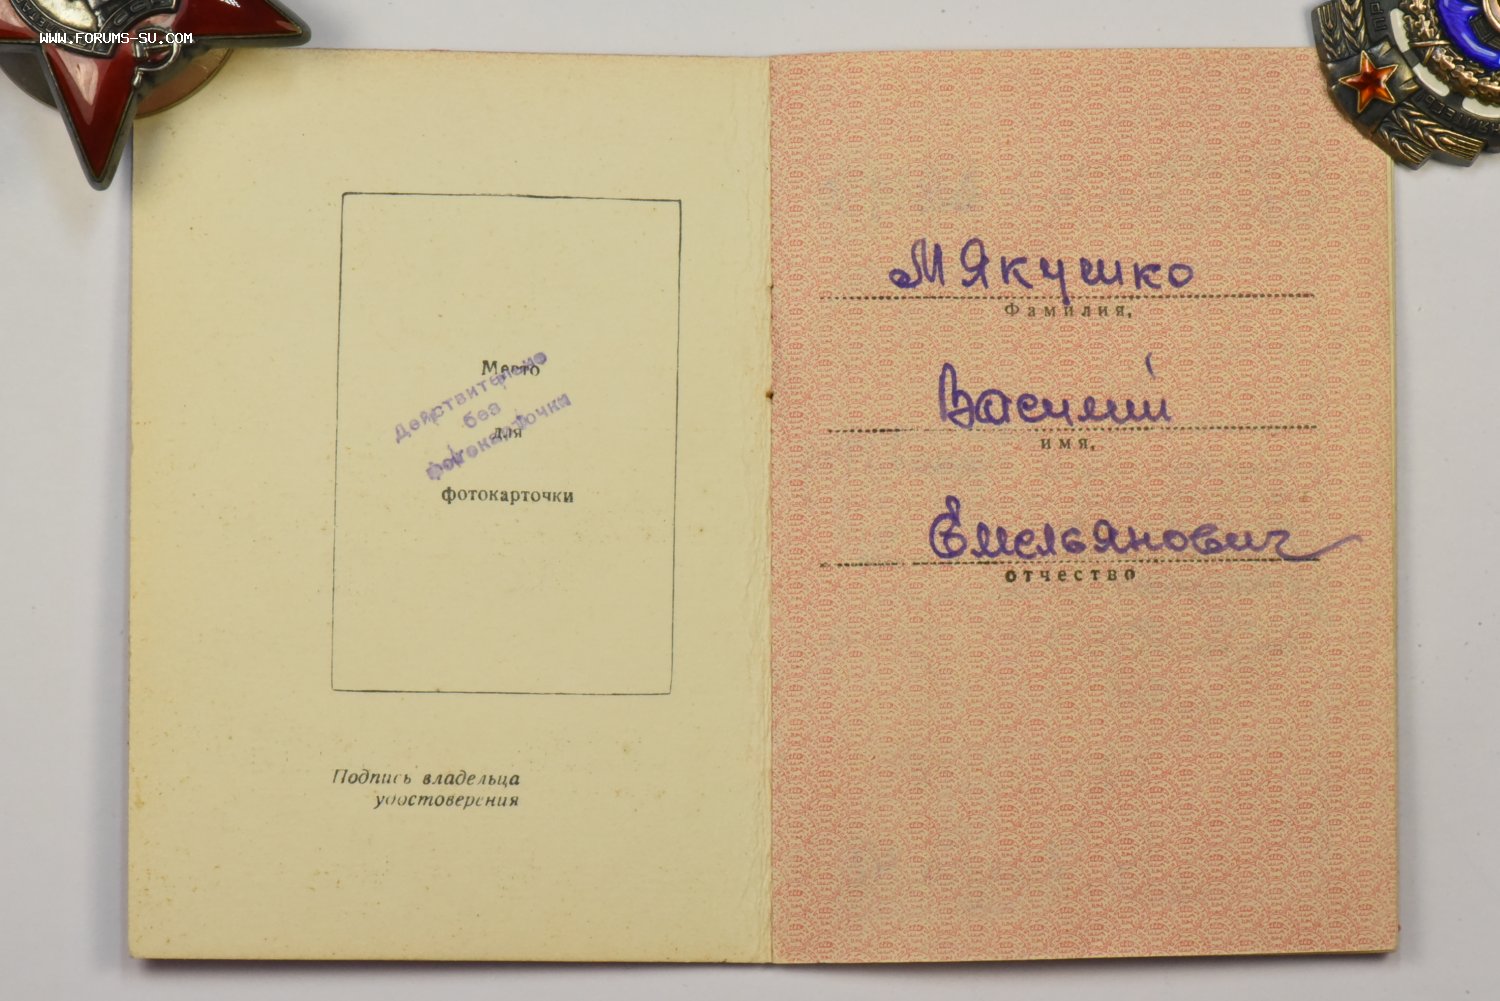 WWW.FORUMS-SU.COM
Место
для
фотокарточки
Действительно
без
фотокарточки
Подпись владельца
удостоверения
Мякушко
Фамилия,
Василий
имя,
Емельянович
отчество